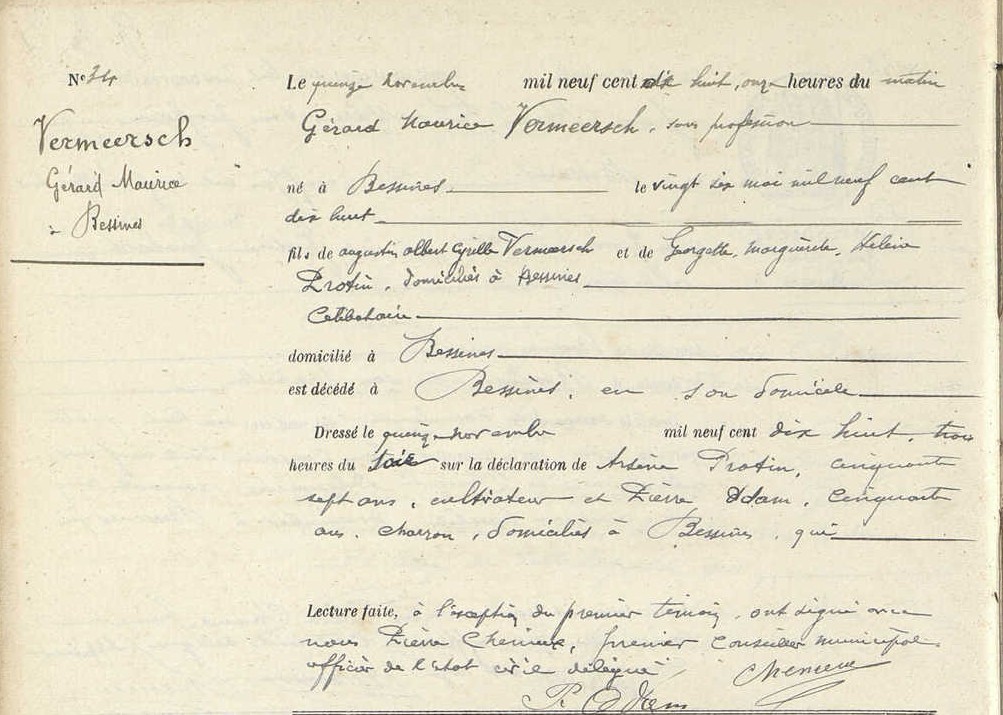 N° 34
Vermeersch
Gérard Maurice
à Bessines
Le quinze novembre mil neuf cent dix huit, onze heures du matin
Gérard Maurice Vermeersch, sans profession
né à Bessines le vingt six mai mil neuf cent
dix huit
fils de augustin albert Cyrille Vermeersch et de Georgette, marguerite, Hélène
Protin, domiciliés à Bessines
Célibataire
domicilié à Bessines
est décédé à Bessines, en son domicile
Dressé le quinze novembre mil neuf cent dix huit, trois
heures du soir sur la déclaration de Arsène Protin, cinquante
sept ans, cultivateur et Pierre Adam, cinquante
ans, charron, domiciliés à Bessines, qui
Lecture faite, à l'exception du premier témoin, ont signé avec
nous Pierre premier conseiller municipal
officier de l'Etat civil délégué
P. Adam